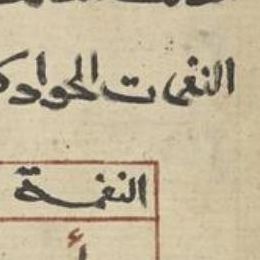 النغمات الحواد
النغمة
أ